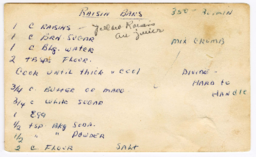 RAISIN BARS 350 - 30 MIN
1 C RAISINS - Yellow Raisins
are Juicier
1 C BRN SUGAR MIX CRUMB
1 C BLG. WATER
2 TBSPS FLOUR.
COOK UNTIL THICK & COOL DIVIDE -
HARD TO
HANDLE
3/4 C BUTTER OR MARG.
3/4 C WHITE SUGAR
1 EGG
1/2 TSP BKG SODA.
1/2 " " POWDER
2 C FLOUR SALT